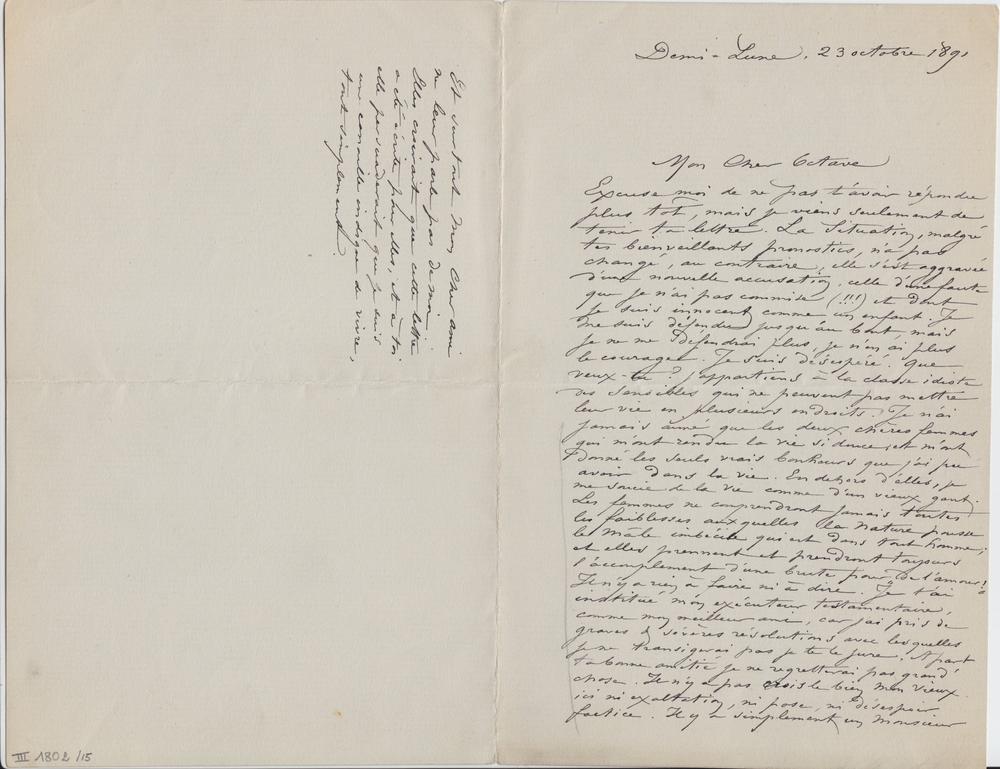 Demi-Lune, 23 octobre 1891
Mon Cher Octave
Excuse moi de ne pas t'avoir répondu
plus tôt, mais je viens seulement de
tenir ta lettre. La Situation, malgré
tes bienveillants pronostics, n'a pas
changé, au contraire, elle s'est aggravée
d'une nouvelle accusation, celle d'une faute
que je n'ai pas commise (!!!) et dont
je suis innocent comme un enfant. Je
me suis défendu jusqu'au bout, mais
je ne me défendrai plus, je n'en ai plus
le courage. Je suis désespéré. Que
veux-tu ? j'appartiens à la classe idiote
des sensibles qui ne peuvent pas mettre
leur vie en plusieurs endroits. Je n'ai
jamais aimé que les deux chères femmes
qui m'ont rendu la vie si douce, et m'ont
donné les seuls vrais bonheurs que j'ai pu
avoir dans la vie. En dehors d'elles, je
me soucie de la vie comme d'un vieux gant.
Les femmes ne comprendront jamais toutes
les faiblesses auxquelles la nature pousse
le mâle imbécile qui est dans tout homme,
et elles prennent et prendront toujours
l'accomplement d'une brute pour de l'amour !
Il n'y a rien à faire ni à dire. Je t'ai
institué mon exécuteur testamentaire,
comme mon meilleur ami, car j'ai pris de
graves & sévères résolutions avec lesquelles
je ne transigerai pas je te le jure. A part
ta bonne amitié je ne regretterai pas grand'
chose. Il n'y a pas crois le bien mon vieux
ici ni exaltation, ni pose, ni désespoir
factice. Il y a simplement un Monsieur
Et surtout Mon Cher ami
ne leur parle pas de moi.
Elles croiraient que cette lettre
a été écrite pour elles, et à toi
elle persuaderaient que je suis
une canaille indigne de vivre,
tout simplement.
III 1802/15